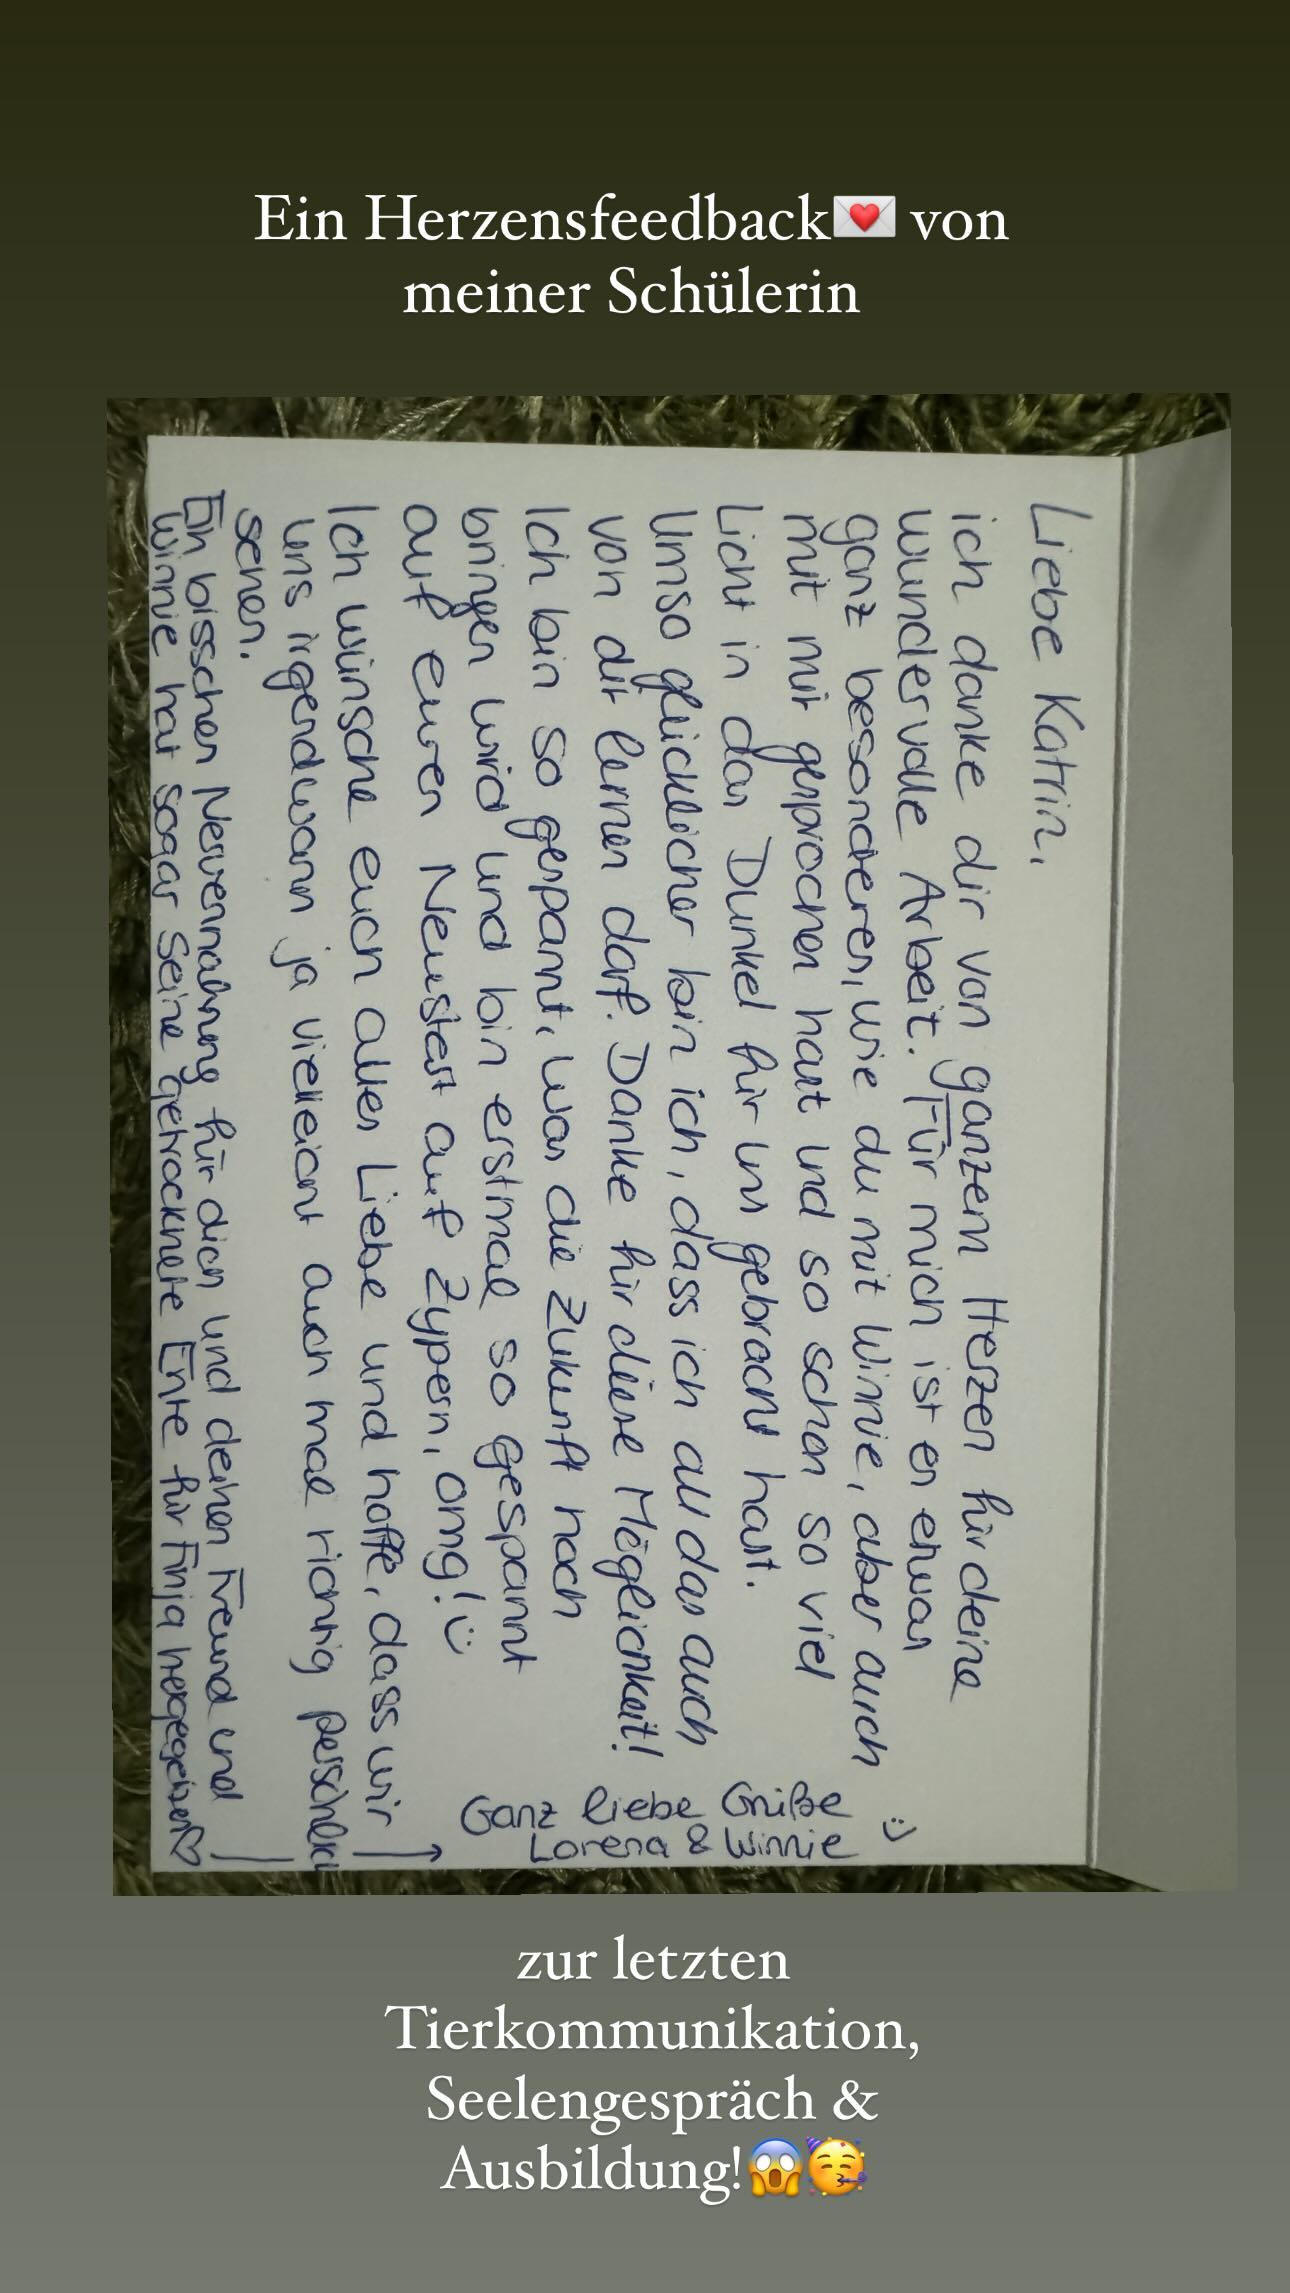 Ein Herzensfeedback💌 von
meiner Schülerin
Liebe Katrin,
ich danke dir von ganzem Herzen für deine
wundervolle Arbeit. Für mich ist es etwas
ganz besonderes, wie du mit Winnie, aber auch
mit mir gesprochen hast und so schon so viel
Licht in das Dunkel für uns gebracht hast.
Umso glücklicher bin ich, dass ich all das auch
von dir lernen darf. Danke für diese Möglichkeit!
Ich bin so gespannt, was die Zukunft noch
bringen wird und bin erstmal so gespannt
auf euren Neustart auf Zypern, omg! :)
Ich wünsche euch alles Liebe und hoffe, dass wir
uns irgendwann ja vielleicht auch mal richtig persönlich
sehen.
Ein bisschen Nervennahrung für dich und deinen Freund und
Winnie hat sogar seine getrocknete Ente für Finja hergegeben♡
Ganz liebe Grüße
Lorena & Winnie :)
zur letzten
Tierkommunikation,
Seelengespräch &
Ausbildung!😱🥳